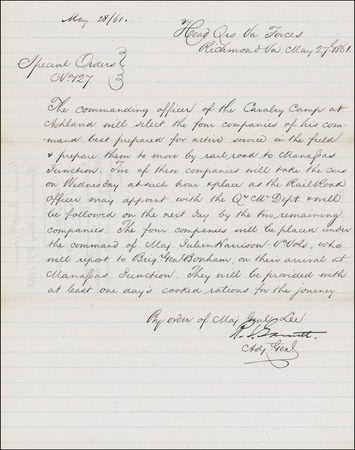 May 28/61.
Head Qrs Va Forces
Richmond Va May 27th 1861.
Special Orders
No 127
The commanding officer of the Cavalry Camp at
Ashland will select the four companies of his com-
mand best prepared for active service in the field
& prepare them to move by rail road to Manassas
Junction. Two of these companies will take the cars
on Wednesday at such hour & place as the Rail Road
Officer may appoint with the Qr Mr Dept. & will
be followed on the next day by the two remaining
companies. The four companies will be placed under
the command of Maj Julien Harrison Va Vols, who
will report to Brig Genl Bonham, on their arrival at
Manassas Junction. They will be provided with
at least one day's cooked rations for the journey.
By order of Maj Genl Lee
R. S. Garnett.
Adj Genl